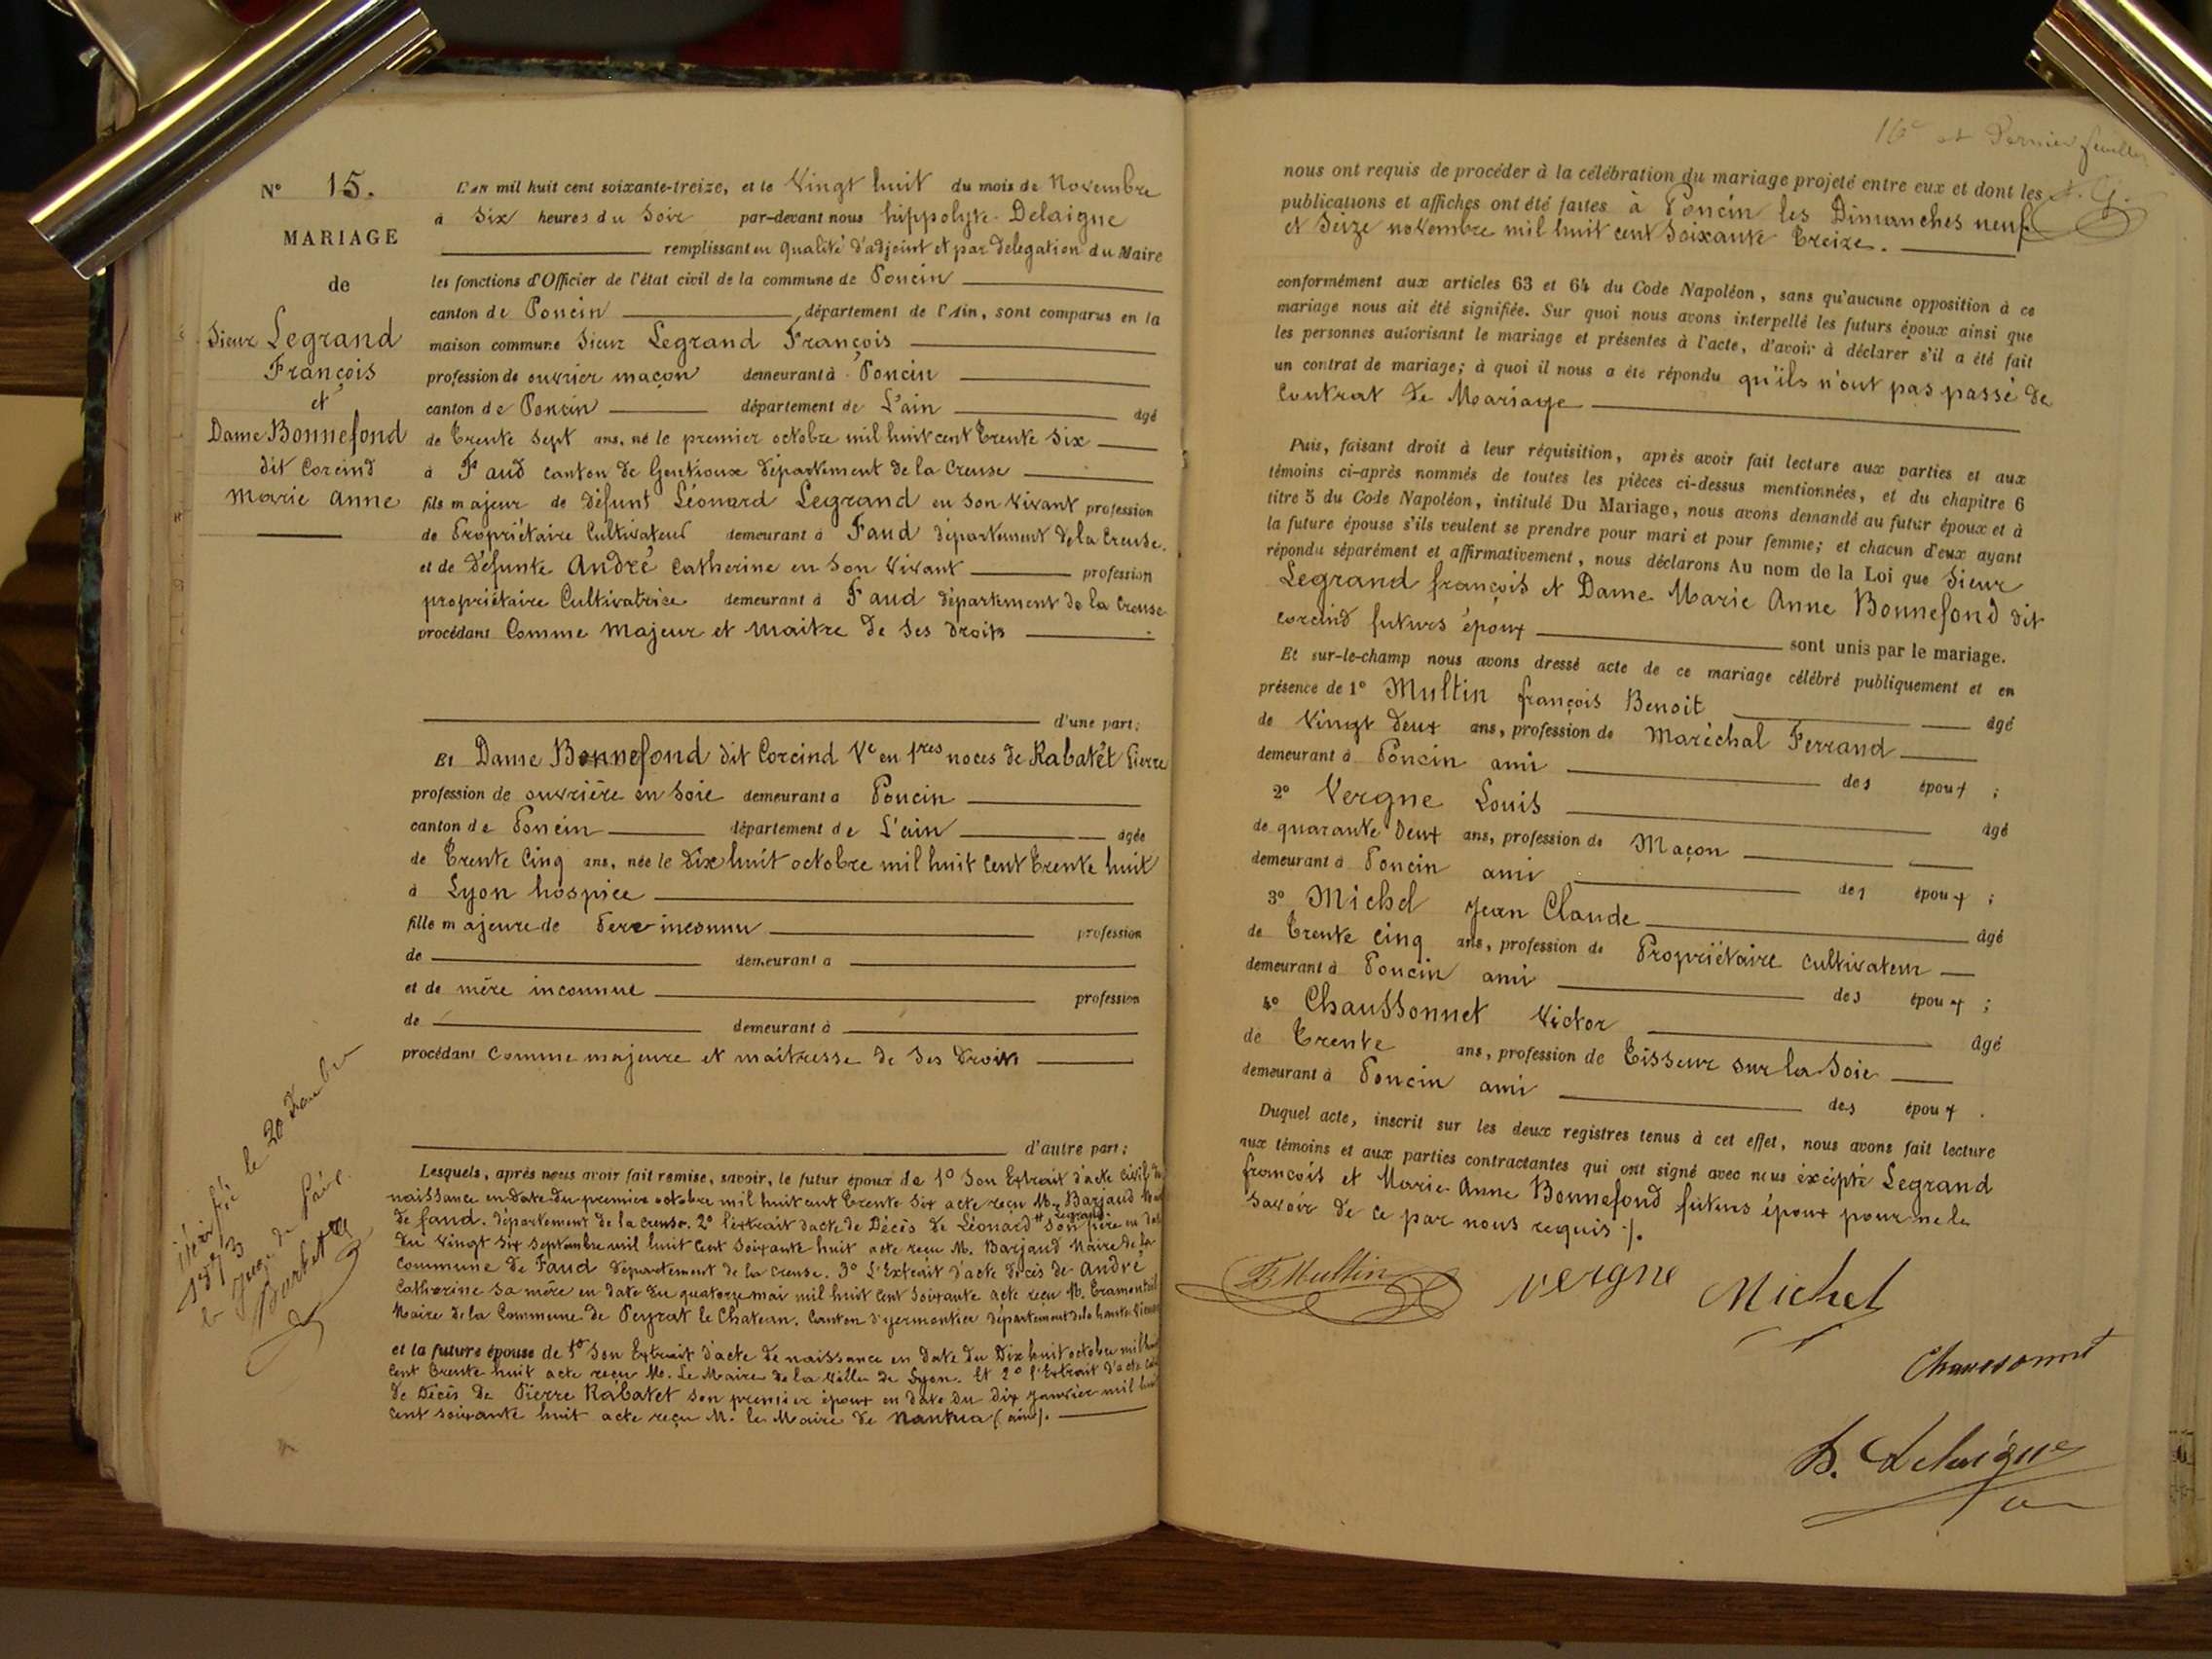 N° 15.
MARIAGE
de
Sieur Legrand
François
et
Dame Bonnefond
dit Corcind
Marie Anne
L'an mil huit cent soixante-treize, et le Vingt huit du mois de Novembre
à Six heures du Soir par-devant nous hippolyte Delaigne
remplissant en qualité d'adjoint et par délégation du Maire
les fonctions d'Officier de l'état civil de la commune de Poncin
canton de Poncin département de l'Ain, sont comparus en la
maison commune Sieur Legrand François
profession de ouvrier maçon demeurant à Poncin
canton de Poncin département de L'ain âgé
de Trente Sept ans, né le premier octobre mil huit cent Trente Six
à Faud canton de Gentioux département de la Creuse
fils majeur de défunt Léonard Legrand en son vivant profession
de Propriétaire Cultivateur demeurant à Faud département de la Creuse.
et de défunte André Catherine en son vivant profession
propriétaire Cultivatrice demeurant à Faud département de la Creuse
procédant Comme Majeur et Maitre de ses droits
d'une part;
Et Dame Bonnefond dit Corcind Ve en 1res noces de Rabatét Pierre
profession de ouvrière en Soie demeurant à Poncin
canton de Poncin département de L'ain âgée
de Trente Cinq ans, née le Dix huit octobre mil huit cent Trente huit
à Lyon hospice
fille majeure de Père inconnu profession
de demeurant à
et de mère inconnue profession
de demeurant à
procédant Comme majeure et maitresse de ses droits
d'autre part;
Lesquels, après nous avoir fait remise, savoir, le futur époux de 1° Son Extrait d'acte civil de
naissance en date du premier octobre mil huit cent Trente Six acte reçu Mr Barjaud
de faud. département de la creuse. 2° l'extrait d'acte de Décès de Léonard Legrand son père en date
du Vingt Six Septembre mil huit Cent Soixante huit acte reçu M. Barjaud Maire de la
Commune de Faud département de la creuse. 3° L'Extrait d'acte décès de André
Catherine sa mère en date du quatorze mai mil huit Cent Soixante acte reçu M. Tramonteil
Maire de la Commune de Peyrat le Chateau. Canton d'yermontier département de la haute Vienne
et la future épouse de 1° Son Extrait d'acte de naissance en date du Dix huit octobre mil huit
Cent Trente huit acte reçu M. Le Maire de la Ville de Lyon. Et 2° l'Extrait d'acte
de Décès de Pierre Rabatet son premier époux en date du dix janvier mil huit
cent soixante huit acte reçu M. le Maire de Nantua (ain).
Vérifié le 20 Décembre
1873
le Juge de Paix
16e et Dernier feuillet
nous ont requis de procéder à la célébration du mariage projeté entre eux et dont les
publications et affiches ont été faites à Poncin les Dimanches neuf
et Seize novembre mil huit cent Soixante Treize.
conformément aux articles 63 et 64 du Code Napoléon, sans qu'aucune opposition à ce
mariage nous ait été signifiée. Sur quoi nous avons interpellé les futurs époux ainsi que
les personnes autorisant le mariage et présentes à l'acte, d'avoir à déclarer s'il a été fait
un contrat de mariage; à quoi il nous a été répondu qu'ils n'ont pas passé de
Contrat de Mariage
Puis, faisant droit à leur réquisition, après avoir fait lecture aux parties et aux
témoins ci-après nommés de toutes les pièces ci-dessus mentionnées, et du chapitre 6
titre 5 du Code Napoléon, intitulé Du Mariage, nous avons demandé au futur époux et à
la future épouse s'ils veulent se prendre pour mari et pour femme; et chacun d'eux ayant
répondu séparément et affirmativement, nous déclarons Au nom de la Loi que Sieur
Legrand françois et Dame Marie Anne Bonnefond dit
corcind futurs époux sont unis par le mariage.
Et sur-le-champ nous avons dressé acte de ce mariage célébré publiquement et en
présence de 1° Multin françois Benoit âgé
de Vingt Deux ans, profession de Maréchal Ferrand
demeurant à Poncin ami des époux;
2° Vergne Louis âgé
de quarante Deux ans, profession de Maçon
demeurant à Poncin ami des époux;
3° Michel Jean Claude âgé
de Trente Cinq ans, profession de Propriétaire cultivateur
demeurant à Poncin ami des époux;
4° Chaussonnet Victor âgé
de Trente ans, profession de Tisseur sur la Soie
demeurant à Poncin ami des époux.
Duquel acte, inscrit sur les deux registres tenus à cet effet, nous avons fait lecture
aux témoins et aux parties contractantes qui ont signé avec nous éxcépté Legrand
françois et Marie Anne Bonnefond futurs époux pour ne le
savoir de ce par nous requis ./.
B Multin Vergne Michel
Chaussonnet
h. Delaigne